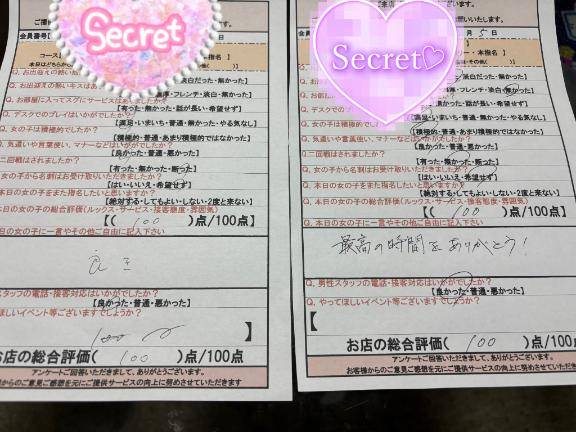 Secret
会員番号
コース
Q. お部屋に入ってスグにサービスはありましたか?
【有った・無かった・話が長い・希望せず】
Q. デスクでのプレイはいかがでしたか?
【満足・いまいち・普通・無かった・やる気なし】
Q. 女の子は積極的でしたか?
【積極的・普通・あまり積極的ではなかった】
Q. 気遣いや言葉使い、マナーなどはいかがでしたか?
【良かった・普通・悪かった】
二回戦はされましたか?
【有った・無かった・断った】
女の子から名刺はお受け取りいただきましたか?
【はい・いいえ・希望せず】
本日の女の子をまた指名したいと思いますか?
【絶対する・してもよい・しない・2度と来ない】
本日の女の子の総合評価(ルックス・サービス・接客態度・雰囲気)
【( 100 )点/100点】
の女の子に一言やその他ご自由に記入下さい
スタッフの電話・接客対応はいかがでしたか?
【良かった・普通・悪かった】
ほしいイベント等ございますでしょうか?
お店の総合評価( 100 )点/100点
アンケートご回答いただきまして、ありがとうございます。
からのご意見ご感想を元にご提供サービスの向上に努めさせていただきます
Secret♡
月 5 日
・本指名
Q. デスクでの
【満足・いまいち・普通・無かった・やる気なし】
Q. 女の子は積極的でしたか?
【積極的・普通・あまり積極的ではなかった】
Q. 気遣いや言葉使い、マナーなどはいかがでしたか?
【良かった・普通・悪かった】
Q. 二回戦はされましたか?
【有った・無かった・断った】
Q. 女の子から名刺はお受け取りいただきましたか?
【はい・いいえ・希望せず】
Q. 本日の女の子をまた指名したいと思いますか?
【絶対する・してもよい・しない・2度と来ない】
Q. 本日の女の子の総合評価(ルックス・サービス・接客態度・雰囲気)
【( 100 )点/100点】
Q. 本日の女の子に一言やその他ご自由に記入下さい
最高の時間をありがとう!
Q. 男性スタッフの電話・接客対応はいかがでしたか?
【良かった・普通・悪かった】
Q. やってほしいイベント等ございますでしょうか?
お店の総合評価( 100 )点/100点
アンケートご回答いただきまして、ありがとうございます。
お客様からのご意見ご感想を元にご提供サービスの向上に努めさせていただきます